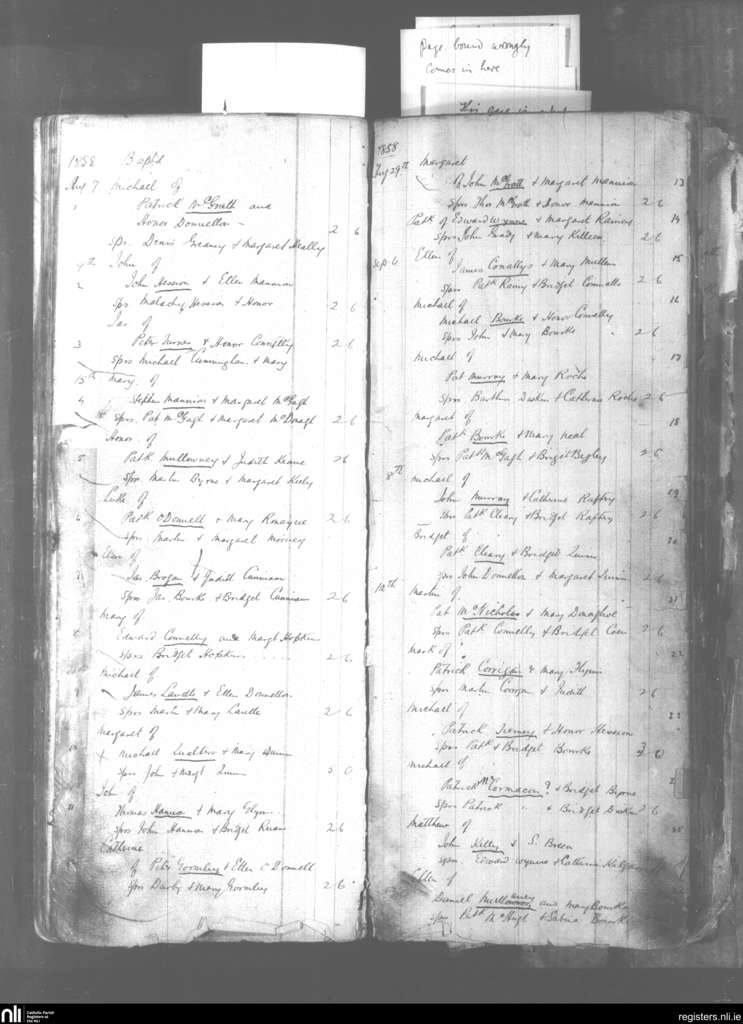 page bound wrongly
comes in here
1858 Baptd
Aug 7. Michael of
1 Patrick McGrath and
Honor Donnellon 2 6
spr. Denis Greaney & Margaret Healy
9th John of
2 John Hession & Ellen Mannion
sprs Malachy Hession & Honor 2 6
Jas of
3 Peter & Honor Connolly 2 6
sprs Michael Cunningham & Mary
15th Mary of
4 Stephen Mannion & Margaret McGagh
sprs. Pat McGagh & Margaret McDonagh 2 6
Honor of
5 Patk Mullowney & Judith Keane 2 6
sprs Martin Byrne & Margaret
Luke of
6 Patk O'Donnell & Mary 2 6
sprs. Martin & Margaret
of
Jas. Brogan & Judith Cunniam
sprs Jas Bourke & Bridget Cunniam 2 6
Mary of
Edward Connolly and Margt Hopkins
sprs Bridget Hopkins .... 2 6
Michael of
James Lavelle & Ellen Donnellon
sprs Martin & Mary Lavelle 2 6
Margaret of
Michael & Mary Quinn
sprs John & Margt Quinn 5 0
John of
11 Thomas Hannon & Mary Glynn
sprs John Hannon & Bridget 2 6
Catherine
of Peter Gormley & Ellen O'Donnell
sprs Darby & Mary Gormley 2 6
1858
Aug 29th Margaret
of John McGrath & Margaret Mannion 13
sprs Thos McGrath & Honor Mannion 2 6
Patk of Edward Wynne & Margaret 14
sprs John Grady & Mary Killeen 2 6
Sep. 6 Ellen of 15
James Connolly & Mary Mullen
sprs Patk & Bridget Connolly 2 6
Michael of 16
Michael Bourke & Honor Connolly
sprs John & Mary Bourke 2 6
Michael of 17
Pat Murray & Mary Roche
sprs & Catherine Roche 2 6
Margaret of 18
Patk Bourke & Mary Neal
sprs Patk McGagh & Bridget Begley 2 6
8th Michael of
John Murray & Catherine Raftry 19
sprs Patk Cleary & Bridget Raftry 2 6
Bridget of 20
Patk Cleary & Bridget Quinn
sprs John Donnellon & Margaret Quinn 2 6
12th Martin of 21
Pat McNicholas & Mary
sprs Patk Connolly & Bridget 2 6
Mark of 22
Patrick Corrigan & Mary Flynn
sprs Martin Corrigan & Judith 2 6
Michael of
Patrick Tierney & Honor Hession
sprs Patk & Bridget Bourke 2 6
Michael of
Patrick McCormacon? & Bridget Byrne
sprs Patrick " & Bridget 2 6
Matthew of 25
John Kelly & S. Breen
sprs. Edward Wynne & Catherine
Ellen of
Daniel and Mary Bourke
sprs Patk McHugh & Sabina Bourke
nli
Catholic Parish
Registers at
the NLI
registers.nli.ie